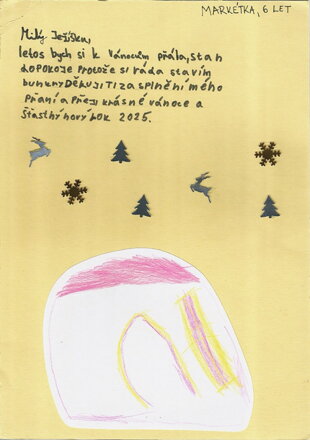 MARKÉTKA, 6 LET
Milý Ježíšku,
letos bych si k Vánocům přála, stan
dopokoje protože si ráda stavím
bunkry Děkuji Ti za splnění mého
Přání a Přeji krásné vánoce a
Šťastný nový rok 2025.